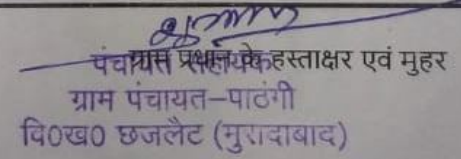 ग्राम प्रधान के हस्ताक्षर एवं मुहर
पंचायत सहायक
ग्राम पंचायत-पाठंगी
वि०ख० छजलैट (मुरादाबाद)